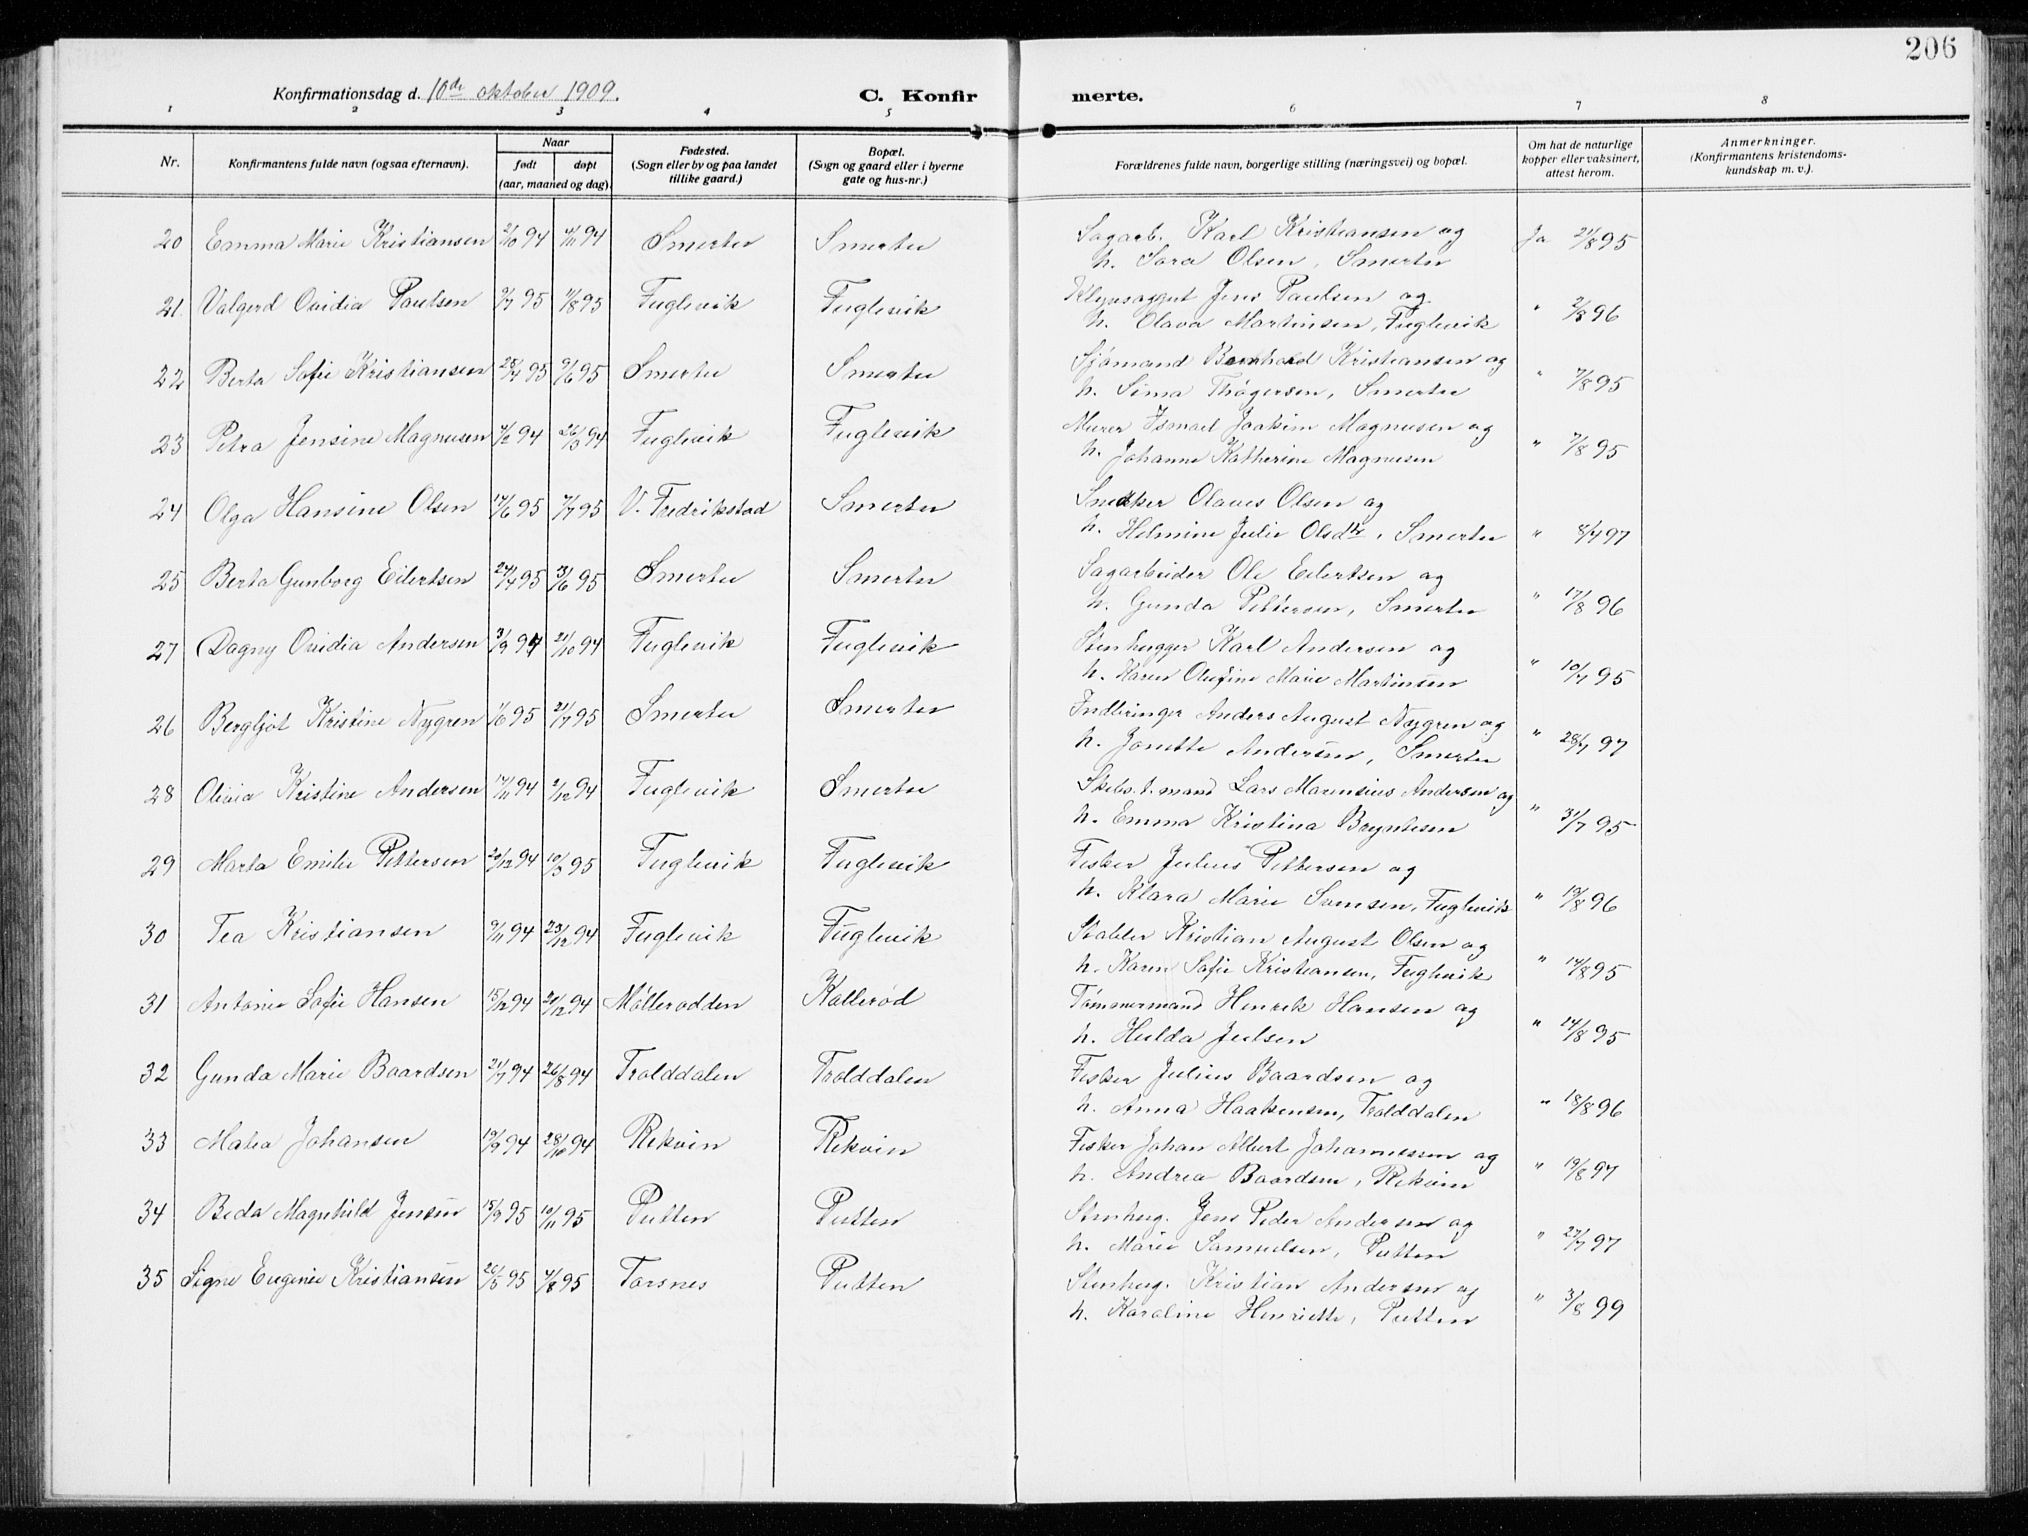 206
Konfirmationsdag d. 10de oktober 1909.
C. Konfirmerte.
1 2 3 4 5 6 7 8
Nr.
Konfirmantens fulde navn (ogsaa efternavn).
Naar
født døpt
(aar, maaned og dag).
Fødested.
(Sogn eller by og paa landet
tillike gaard.)
Bopæl.
(Sogn og gaard eller i byerne
gate og hus-nr.)
Forældrenes fulde navn, borgerlige stilling (næringsvei) og bopæl.
Om hat de naturlige
kopper eller vaksinert,
attest herom.
Anmerkninger.
(Konfirmantens kristendoms-
kundskap m. v.).
20 Emma Marie Kristiansen 21/10 94 4/11 94 Smertu Smertu Sagarb. Karl Kristiansen og Ja 21/8 95
h. Sara Olsen, Smertu
21 Valgerd Ovidia Paulsen 9/7 95 11/8 95 Fuglevik Fuglevik Jens Paulsen og " 2/8 96
h. Olava Martinsen, Fuglevik
22 Berta Sofie Kristiansen 25/4 95 9/6 95 Smertu Smertu Sjómand Bernhard Kristiansen og " 7/8 95
h. Sima Thógersen, Smertu
23 Petra Jensine Magnusen 94 26/3 94 Fuglevik Fuglevik Murer Ismael Joakim Magnusen og " 7/8 95
h. Johanne Katherine Magnusen
24 Olga Hansine Olsen 17/6 95 7/7 95 V. Fredrikstad Smertu Snedker Olaves Olsen og
h. Helmine Julie Olsdtr, Smertu " 8/7 97
25 Berta Gunborg Eilertsen 24/4 95 3/6 95 Smertu Smertu Sagarbeider Ole Eilertsen og
h. Gunda Pettersen, Smertu " 17/8 96
27 Dagny Ovidia Andersen 3/9 94 21/10 94 Fuglevik Fuglevik Stenhugger Karl Andersen og
h. Karen Olufine Marie Martinsen " 10/7 95
26 Bergljót Kristine Nygren 1/6 95 21/7 95 Smertu Smertu Indbringer Anders August Nygren og
h. Jonette Andersen, Smertu " 28/7 97
28 Olivia Kristine Andersen 17/11 94 2/12 94 Fuglevik Smertu Skibst.mand Lars Marensius Andersen og
h. Emma Kristina Bryntesen " 31/7 95
29 Marta Emilie Pettersen 20/12 94 10/3 95 Fuglevik Fuglevik Fisker Julius Pettersen og
h. Klara Marie Svensen, Fuglevik " 19/8 96
30 Tea Kristiansen 9/11 94 23/12 94 Fuglevik Fuglevik Stabler Kristian August Olsen og
h. Karen Sofie Kristiansen, Fuglevik " 14/8 95
31 Antonie Sofie Hansen 15/12 94 94 Móllerodden Kallerød Tómmermand Henrik Hansen og
h. Hulda Julsen " 14/8 95
32 Gunda Marie Baardsen 21/7 94 26/8 94 Trolddalen Trolddalen Fisker Julius Baardsen og
h. Anna Haakensen, Trolddalen " 18/8 96
33 Matea Johansen 19/9 94 28/10 94 Rekvin Rekvin Fisker Johan Albert Johannessen og
h. Andrea Baardsen, Rekvin " 19/8 97
34 Beda Magnhild Jensen 15/9 95 10/11 95 Putten Putten Stenhug. Jens Peder Andersen og
h. Marie Samuelsen, Putten " 27/7 97
35 Signe Eugenie Kristiansen 26/5 95 4/8 95 Torsnes Putten Stenhug. Kristian Andersen og
h. Karoline Henriette, Putten " 3/8 99